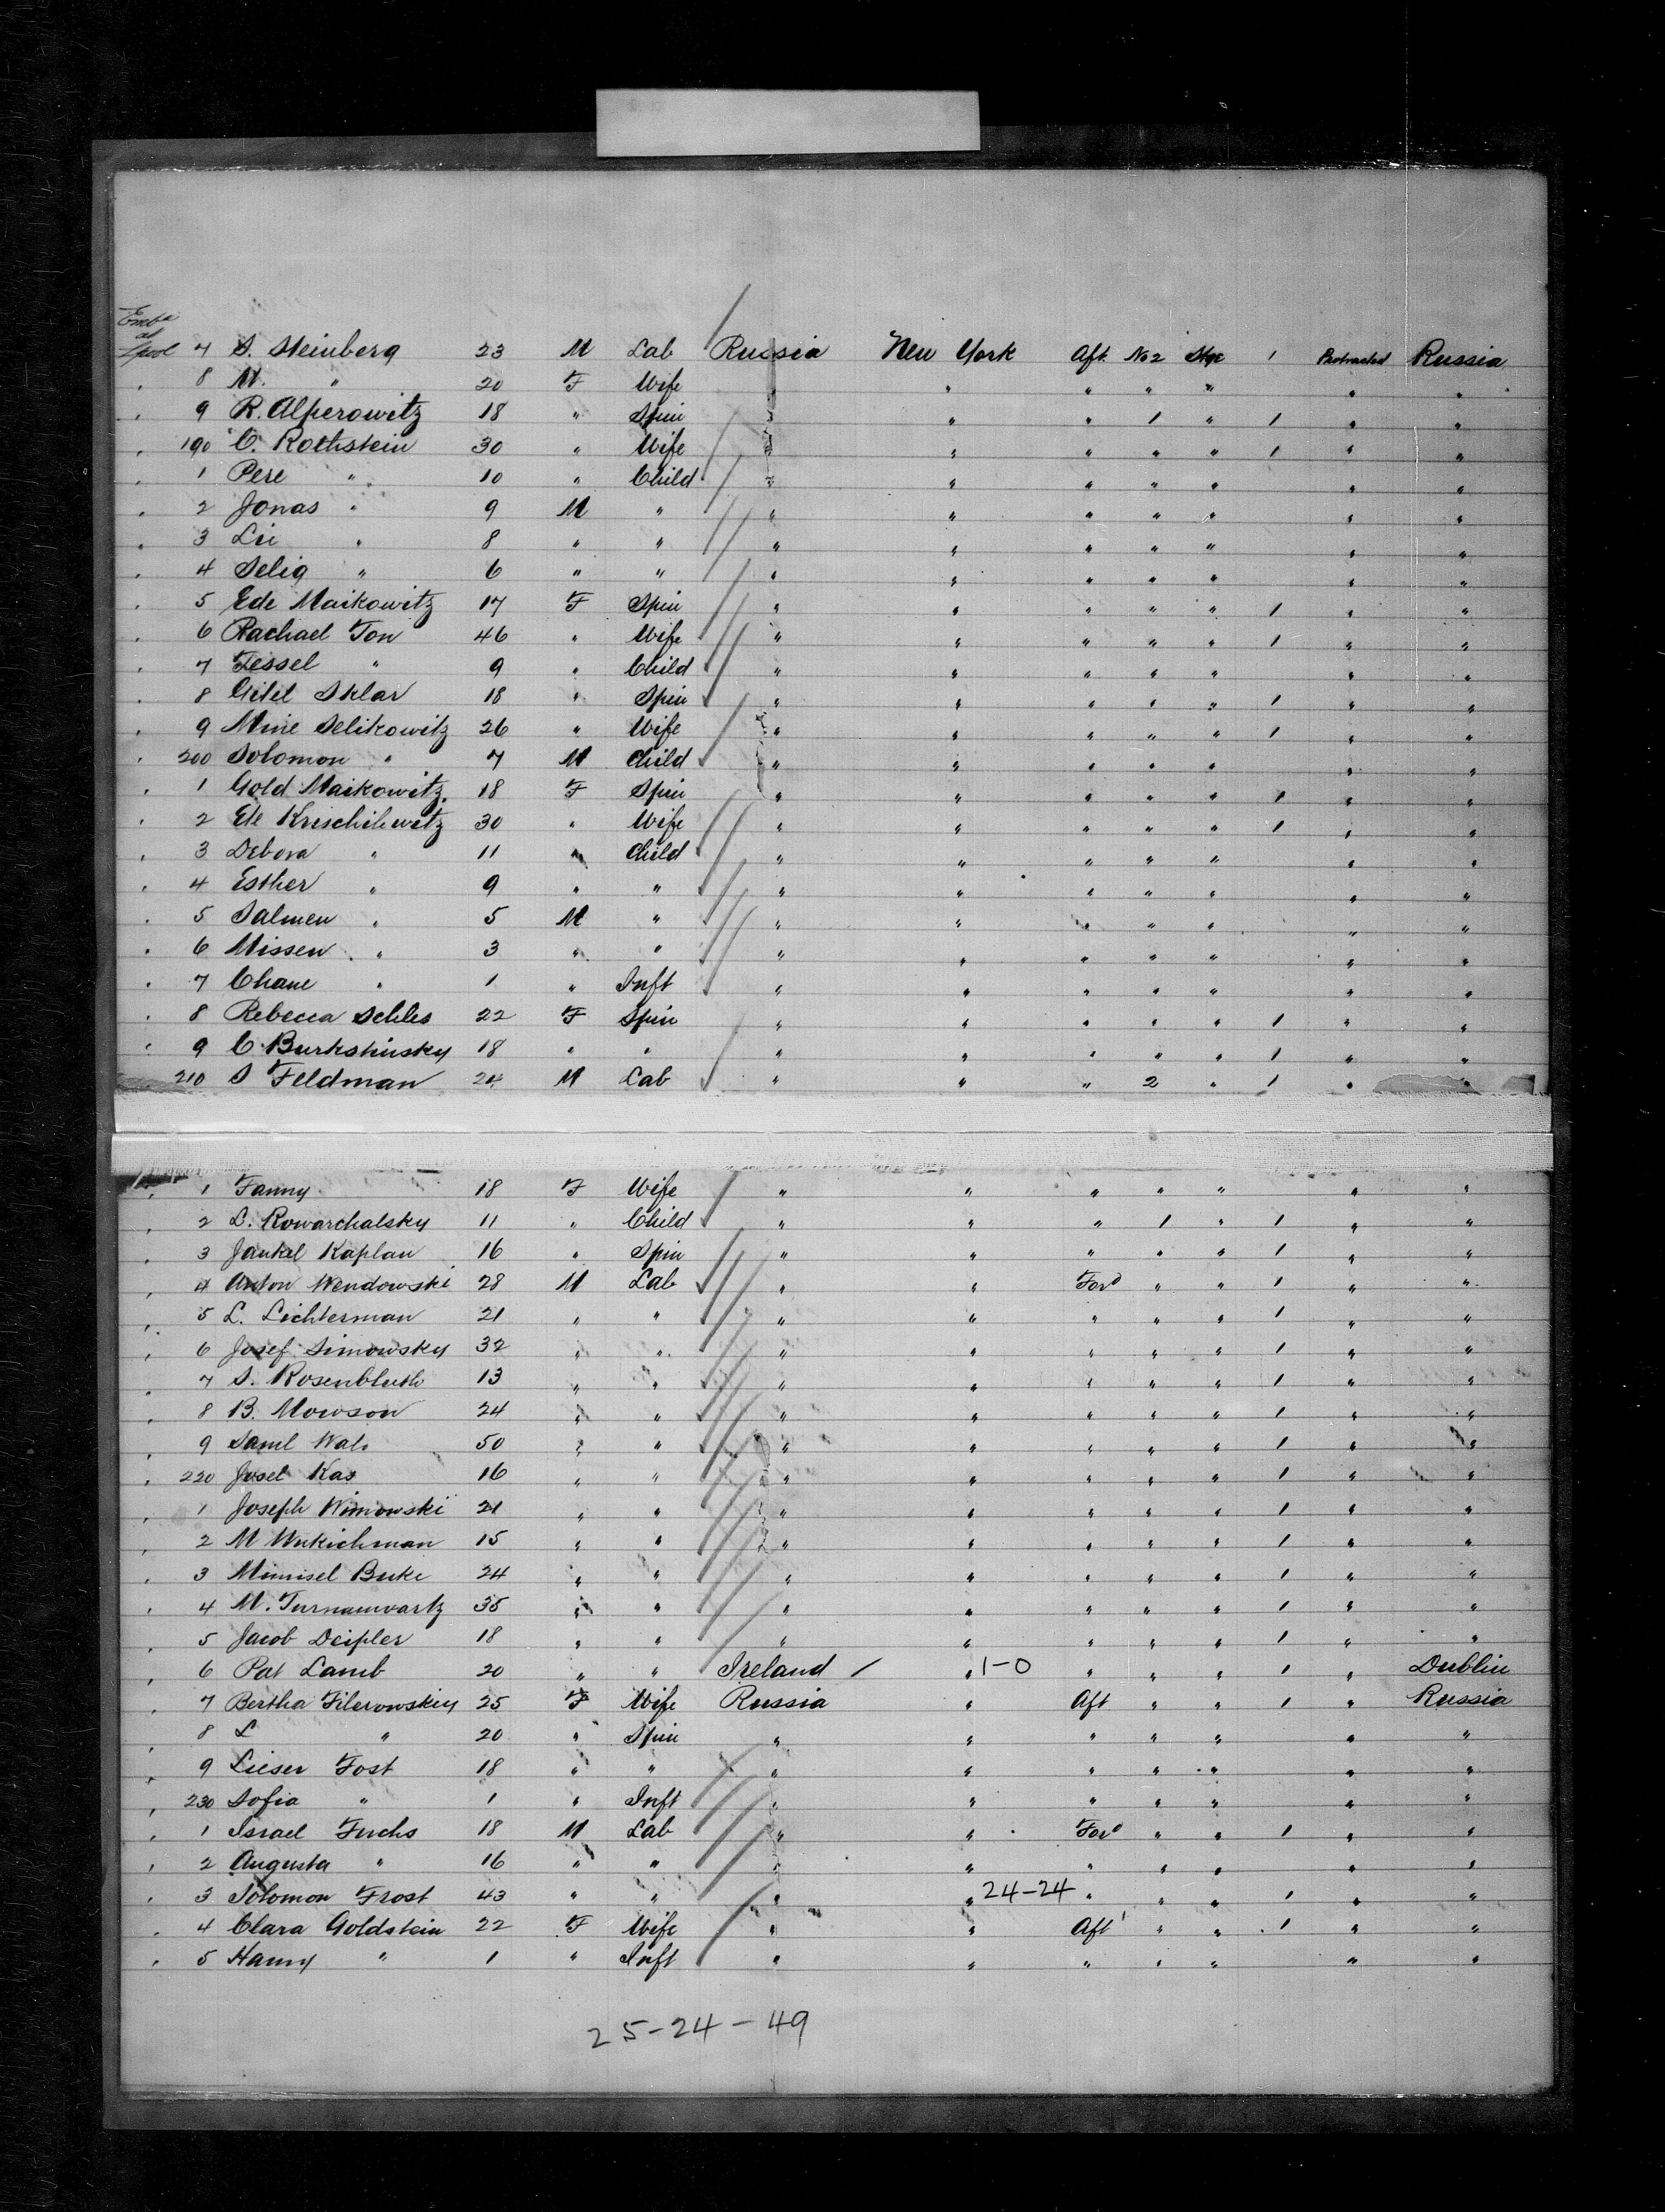 Embd at Lpool 7 S. Steinberg 23 M Lab Russia New York Aft. No 2 Stge 1 Protracted Russia
" 8 M. " 20 F Wife " " " " " "
" 9 R. Alperowitz 18 " Spin " " " 1 " 1 " "
" 190 C. Rothstein 30 " Wife " " " " " 1 " "
" 1 Pere " 10 " Child " " " " " " "
" 2 Jonas " 9 M " " " " " " " "
" 3 Lii " 8 " " " " " " " " "
" 4 Selig " 6 " " " " " " " " "
" 5 Ede Maikowitz 17 F Spin " " " " " 1 " "
" 6 Rachael Ton 46 " Wife " " " " " 1 " "
" 7 Fessel " 9 " Child " " " " " " "
" 8 Gitel Sklar 18 " Spin " " " " " 1 " "
" 9 Mine Selikowitz 26 " Wife " " " " " 1 " "
" 200 Solomon " 7 M Child " " " " " " "
" 1 Gold Maikowitz 18 F Spin " " " " " 1 " "
" 2 Ele 30 " Wife " " " " " 1 " "
" 3 Debora " 11 " Child " " " " " " "
" 4 Esther " 9 " " " " " " " " "
" 5 Salmen " 5 M " " " " " " " "
" 6 Missen " 3 " " " " " " " " "
" 7 Chane " 1 " Inft " " " " " " "
" 8 Rebecca Schles 22 F Spin " " " " " 1 " "
" 9 C. Burkshinsky 18 " " " " " " " 1 " "
210 S Feldman 24 M Lab " " " 2 " 1 " "
" 1 Fanny 18 F Wife " " " " " " "
" 2 L. Rowarchalsky 11 " Child " " " 1 " 1 " "
" 3 Jankel Kaplan 16 " Spin " " " " " 1 " "
" 4 Anton Wendowski 28 M Lab " " Ford " " 1 " "
" 5 L. Lichterman 21 " " " " " " " 1 " "
" 6 Josef Simowsky 32 " " " " " " " 1 " "
" 7 S. Rosenbluth 13 " " " " " " " 1 " "
" 8 B. Mowson 24 " " " " " " " 1 " "
" 9 Saml 50 " " " " " " " 1 " "
" 220 Josel Kas 16 " " " " " " " 1 " "
" 1 Joseph Wimowski 21 " " " " " " " 1 " "
" 2 M Wukichman 15 " " " " " " " 1 " "
" 3 Mimisel Buke 24 " " " " " " " 1 " "
" 4 M. Turnamwartz 35 " " " " " " " 1 " "
" 5 Jacob Deipler 18 " " " " " " " 1 " "
" 6 Pat Lamb 20 " " Ireland / " 1-0 " " " 1 " Dublin
" 7 Bertha Filerowskiy 25 F Wife Russia " Aft " " 1 " Russia
" 8 L " 20 " Spin " " " " " " "
" 9 Lieser Fost 18 " " " " " " " " "
" 230 Sofia " 1 " Inft " " " " " " "
" 1 Israel Fuchs 18 M Lab " " Ford " " 1 " "
" 2 Augusta " 16 " " " " " " " " "
" 3 Solomon Frost 43 " " " " 24-24 " " " 1 " "
" 4 Clara Goldstein 22 F Wife " " Aft " " 1 " "
" 5 Hanny " 1 " Inft " " " " " " "
25-24-49